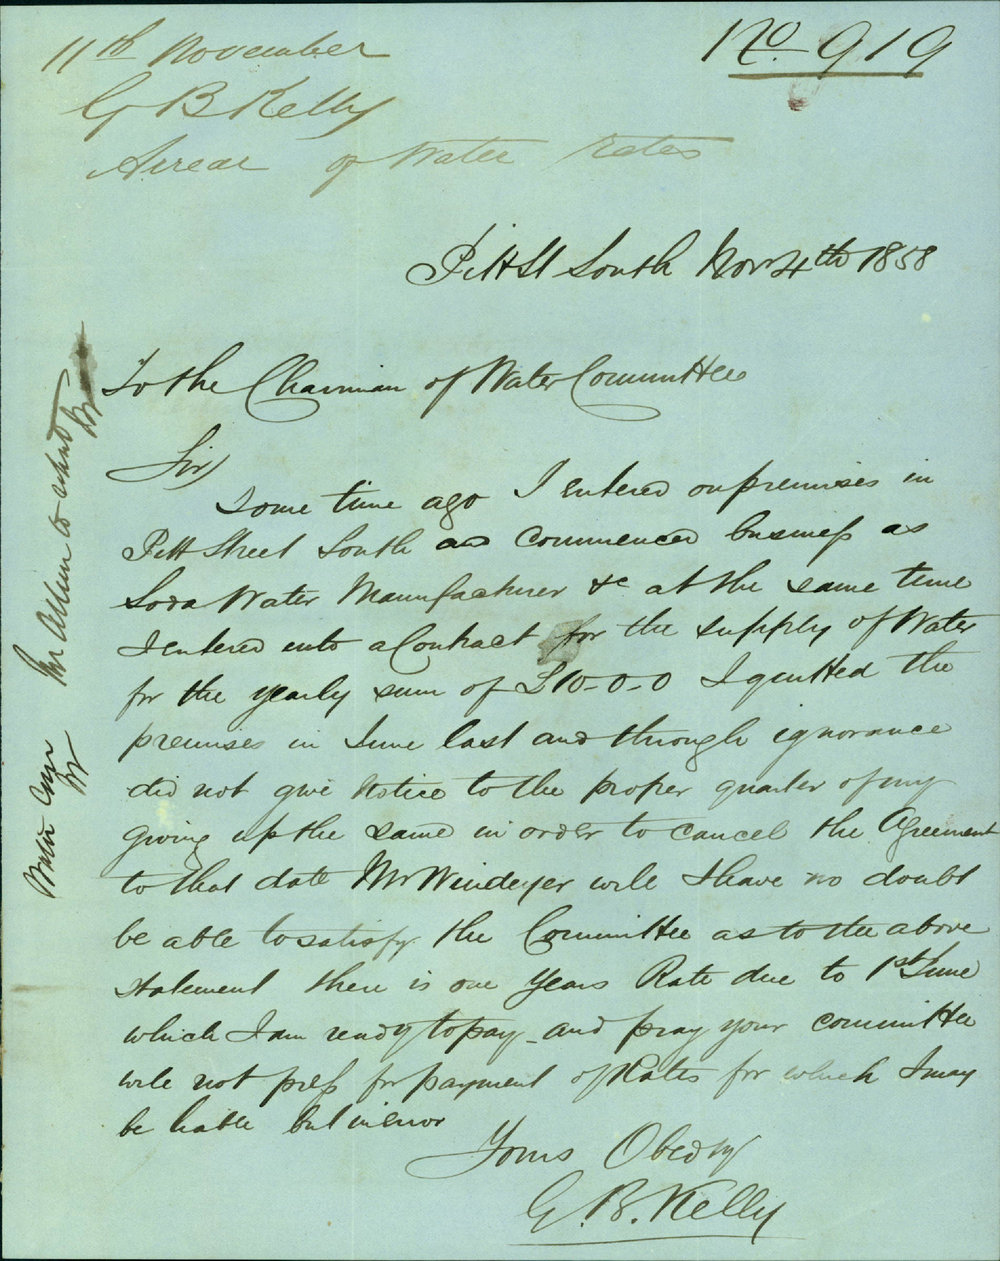 No 919
11th November
G B Kelly
Arrear of Water Rates
Pitt St South Nov 4th 1858
To the Chairman of Water Committee
Sir
Some time ago I entered on premises in
Pitt Street South and commenced business as
Soda Water Manufacturer &c at the same time
I entered into a Contract for the supply of Water
for the yearly sum of £10-0-0 I quitted the
premises in June last and through ignorance
did not give notice to the proper quarter of my
giving up the same in order to cancel the Agreement
to that date Mr Windeyer will I have no doubt
be able to satisfy the Committee as to the above
statement there is one years Rate due to 1st June
which I am ready to pay - and pray your committee
will not press for payment of Rates for which I may
be liable but in error
Yours Obedly
G. B. Kelly
Water Com
Mr Allen to report